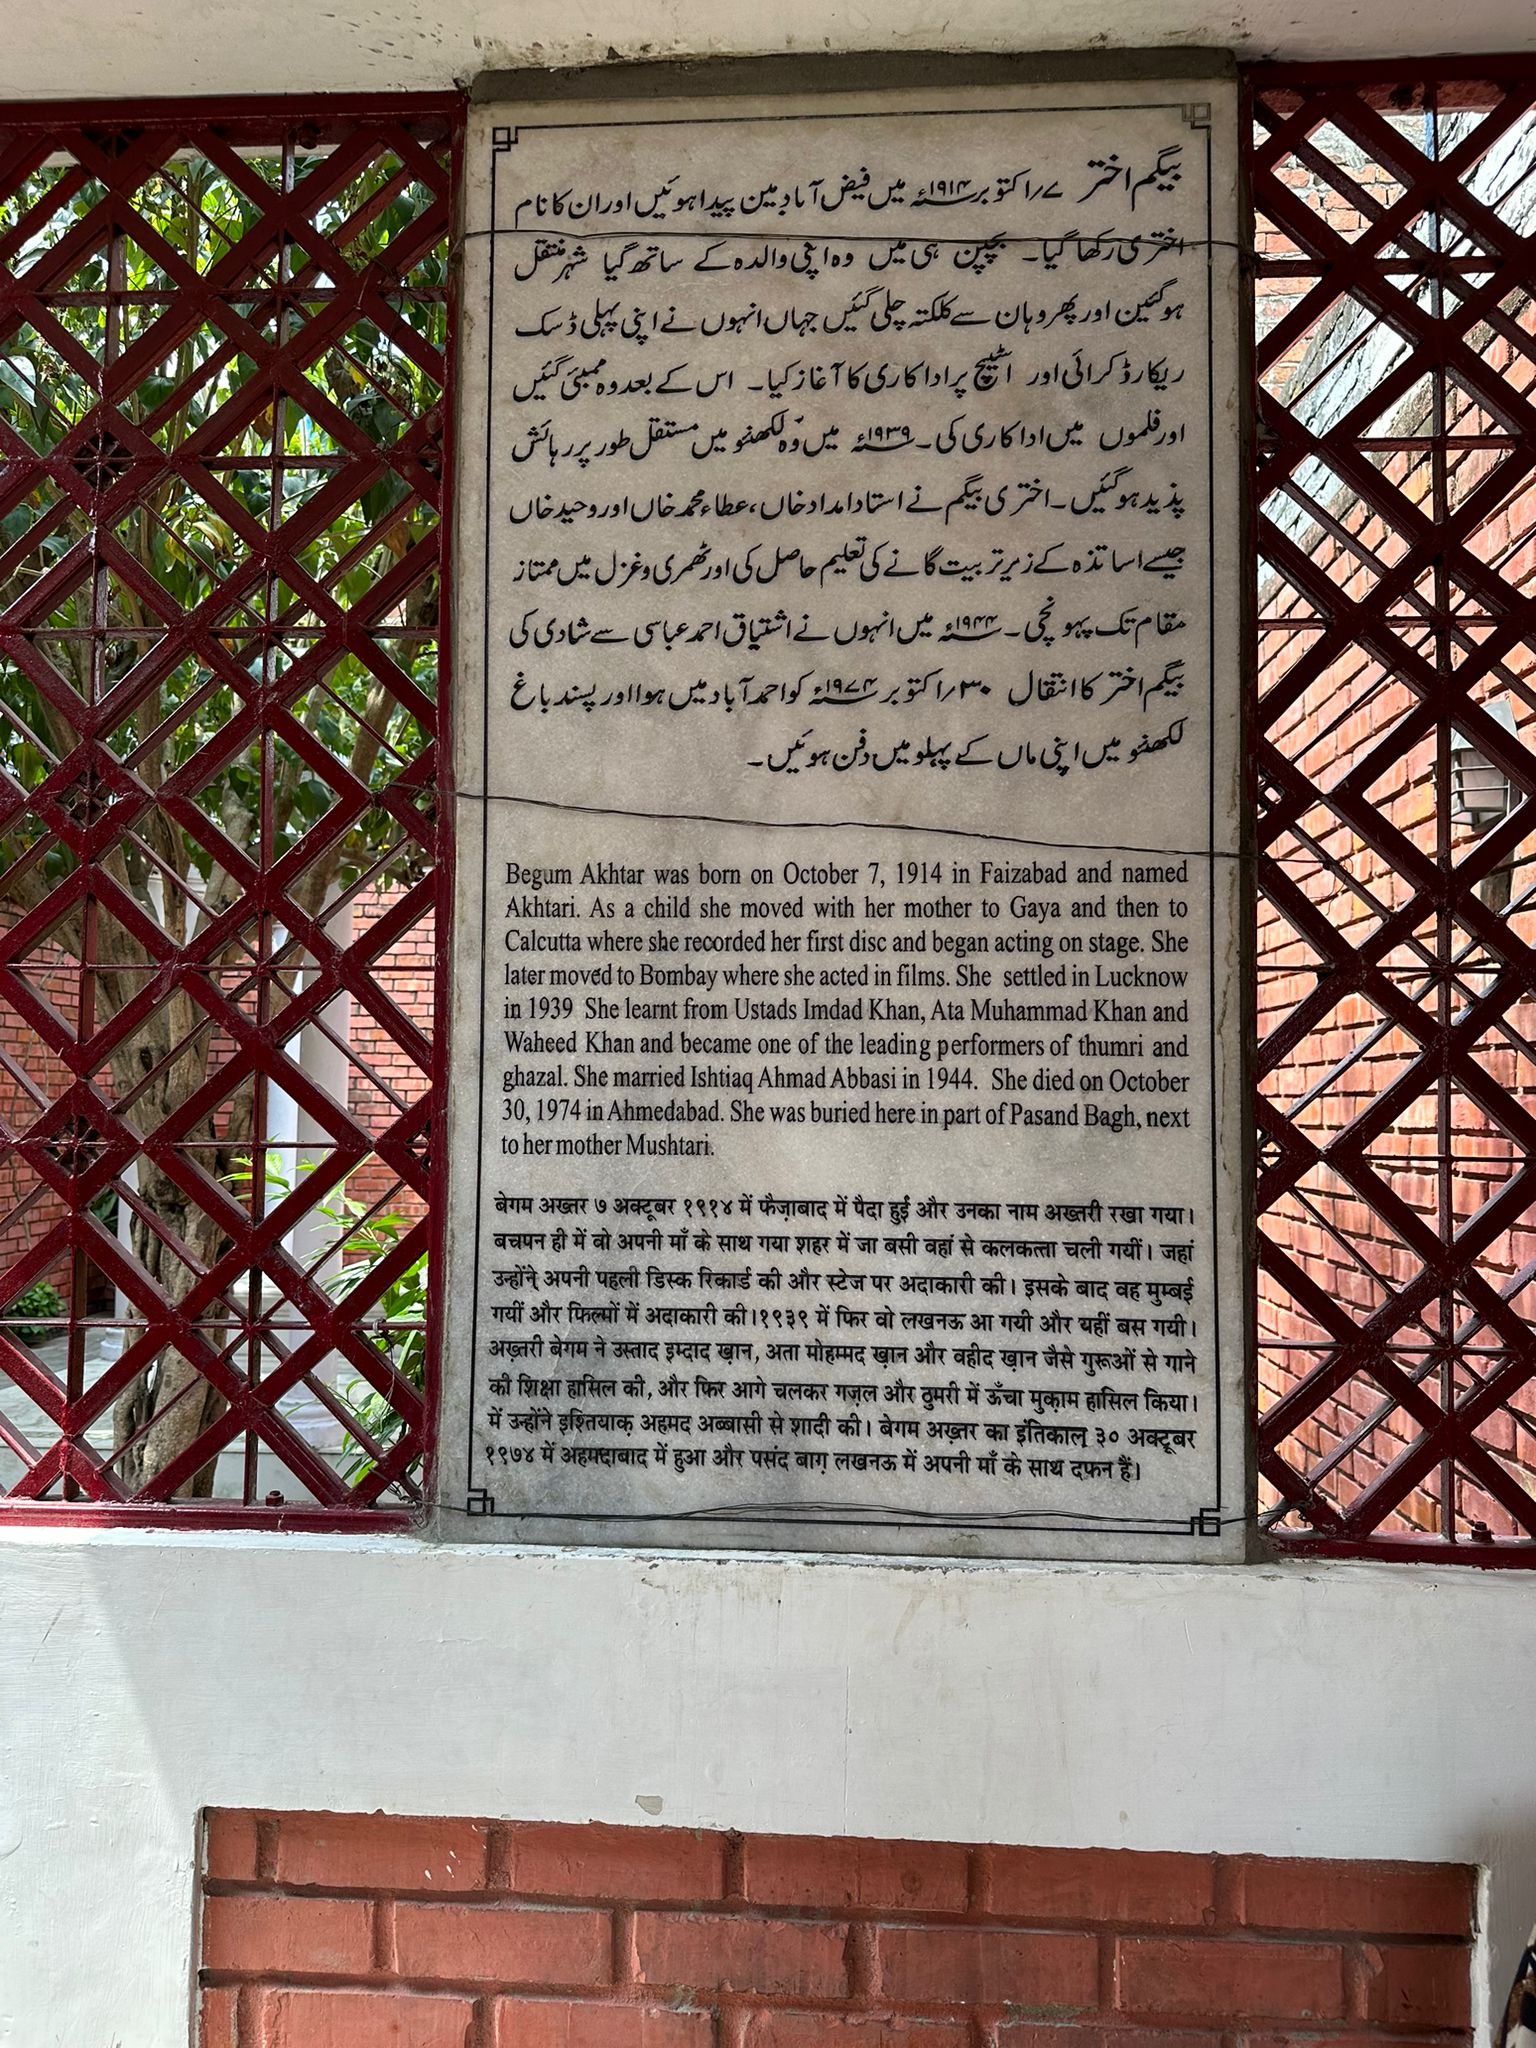 بیگم اختر ۷/اکتوبر ۱۹۱۴ء میں فیض آباد مین پیدا ہوئیں اور ان کا نام
اختری رکھا گیا۔ بچپن ہی میں وہ اپنی والدہ کے ساتھ گیا شہر منتقل
ہوگئین اور پھر وہان سے کلکتہ چلی گئیں جہاں انہوں نے اپنی پہلی ڈسک
ریکارڈ کرائی اور اسٹیج پر اداکاری کا آغاز کیا۔ اس کے بعد وہ ممبئی گئیں
اور فلموں میں اداکاری کی۔ ۱۹۳۹ء میں وہ لکھنؤ میں مستقل طور پر رہائش
پذید ہوگئیں۔ اختری بیگم نے استاد امداد خاں، عطاء محمد خاں اور وحید خاں
جیسے اساتذہ کے زیر تربیت گانے کی تعلیم حاصل کی اور ٹھمری و غزل میں ممتاز
مقام تک پہونچی۔ ۱۹۴۴ء میں انہوں نے اشتیاق احمد عباسی سے شادی کی
بیگم اختر کا انتقال ۳۰/اکتوبر ۱۹۷۴ء کو احمد آباد میں ہوا اور پسند باغ
لکھنؤ میں اپنی ماں کے پہلو میں دفن ہوئیں۔
Begum Akhtar was born on October 7, 1914 in Faizabad and named
Akhtari. As a child she moved with her mother to Gaya and then to
Calcutta where she recorded her first disc and began acting on stage. She
later moved to Bombay where she acted in films. She settled in Lucknow
in 1939 She learnt from Ustads Imdad Khan, Ata Muhammad Khan and
Waheed Khan and became one of the leading performers of thumri and
ghazal. She married Ishtiaq Ahmad Abbasi in 1944. She died on October
30, 1974 in Ahmedabad. She was buried here in part of Pasand Bagh, next
to her mother Mushtari.
बेगम अख्तर ७ अक्टूबर १९१४ में फैज़ाबाद में पैदा हुईं और उनका नाम अख्तरी रखा गया।
बचपन ही में वो अपनी माँ के साथ गया शहर में जा बसी वहां से कलकत्ता चली गयीं। जहां
उन्होंने अपनी पहली डिस्क रिकार्ड की और स्टेज पर अदाकारी की। इसके बाद वह मुम्बई
गयीं और फिल्मों में अदाकारी की।१९३९ में फिर वो लखनऊ आ गयी और यहीं बस गयी।
अख़्तरी बेगम ने उस्ताद इम्दाद ख़ान, अता मोहम्मद ख़ान और वहीद ख़ान जैसे गुरूओं से गाने
की शिक्षा हासिल की, और फिर आगे चलकर गज़ल और ठुमरी में ऊँचा मुक़ाम हासिल किया।
में उन्होंने इश्तियाक़ अहमद अब्बासी से शादी की। बेगम अख़्तर का इंतिकाल् ३० अक्टूबर
१९७४ में अहमदाबाद में हुआ और पसंद बाग़ लखनऊ में अपनी माँ के साथ दफ़न हैं।